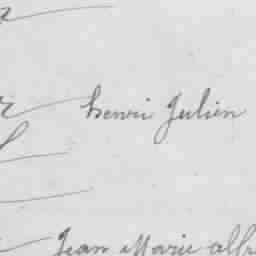 henri Julien
Jean Marie alfr